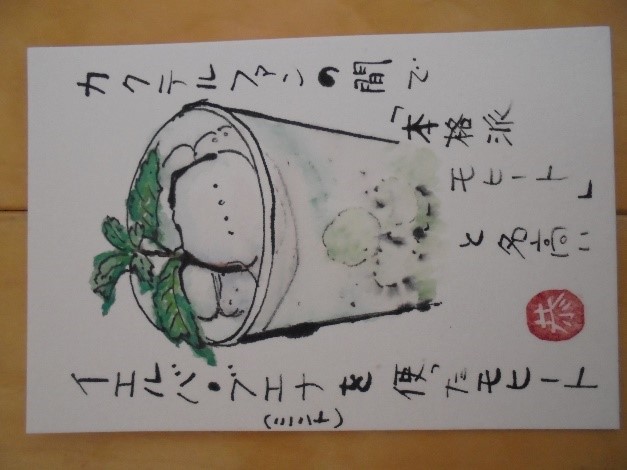 カクテルファンの間で
「本格派
モヒート」
と名高い
イエルバ・ブエナを使ったモヒート
(ミント)
恭